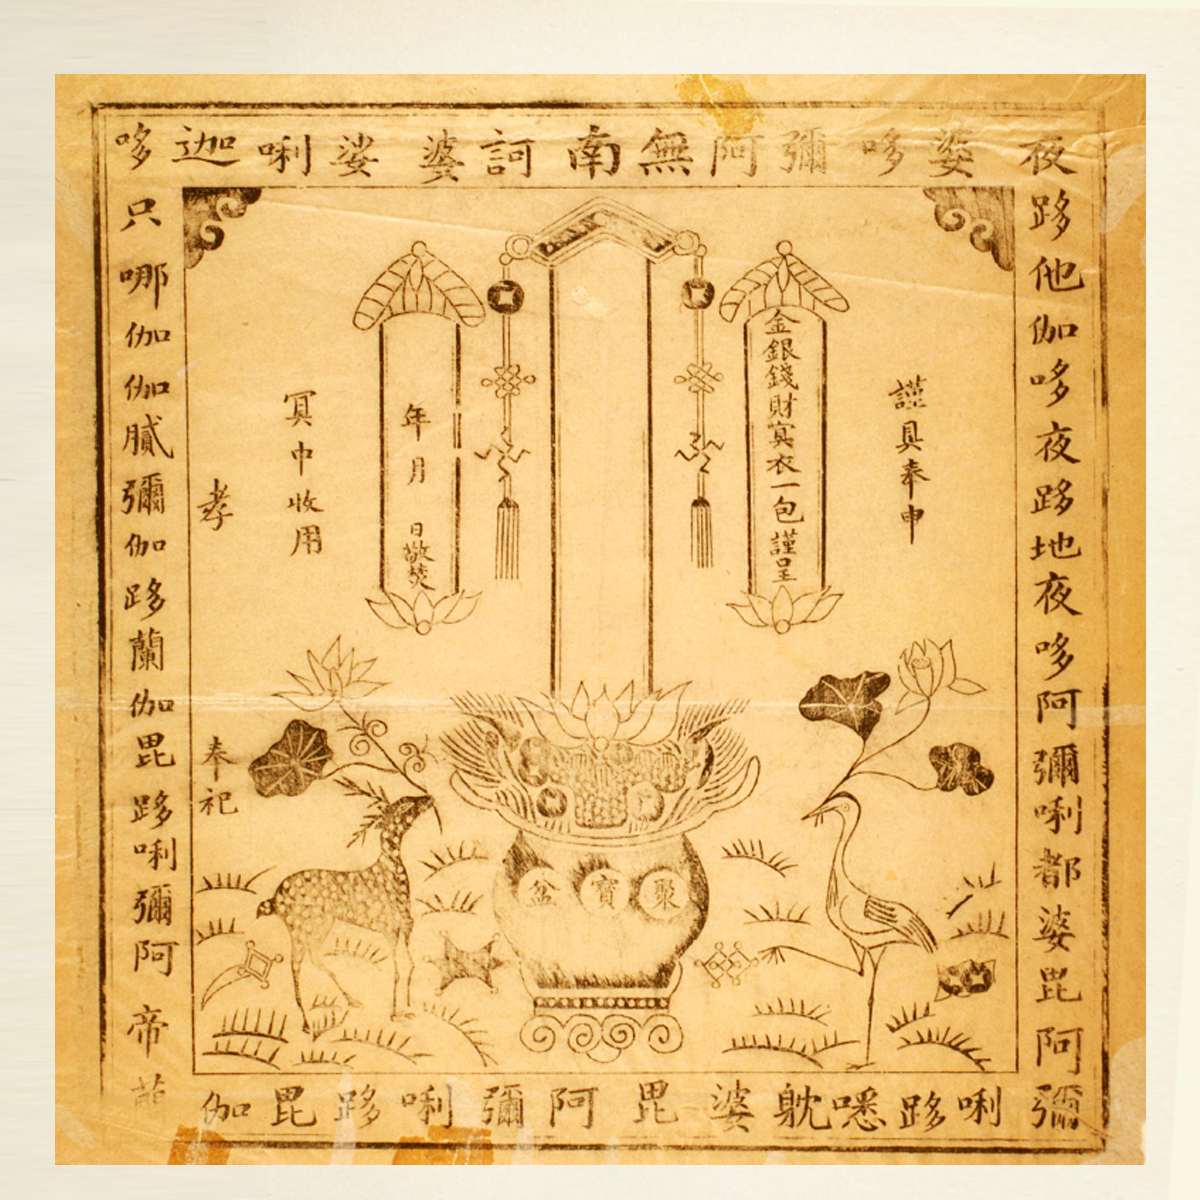 南無阿彌哆婆夜
跢他伽哆夜跢地夜哆阿彌唎都婆毘阿彌
唎跢㗭躭婆毘阿彌唎跢毘伽
帝阿彌唎跢毘伽蘭跢伽彌膩伽伽哪只哆
迦唎娑婆訶
謹具奉申
金銀錢財冥衣一包謹呈
年月日敬焚
冥中收用
孝
奉祀
聚寶盆